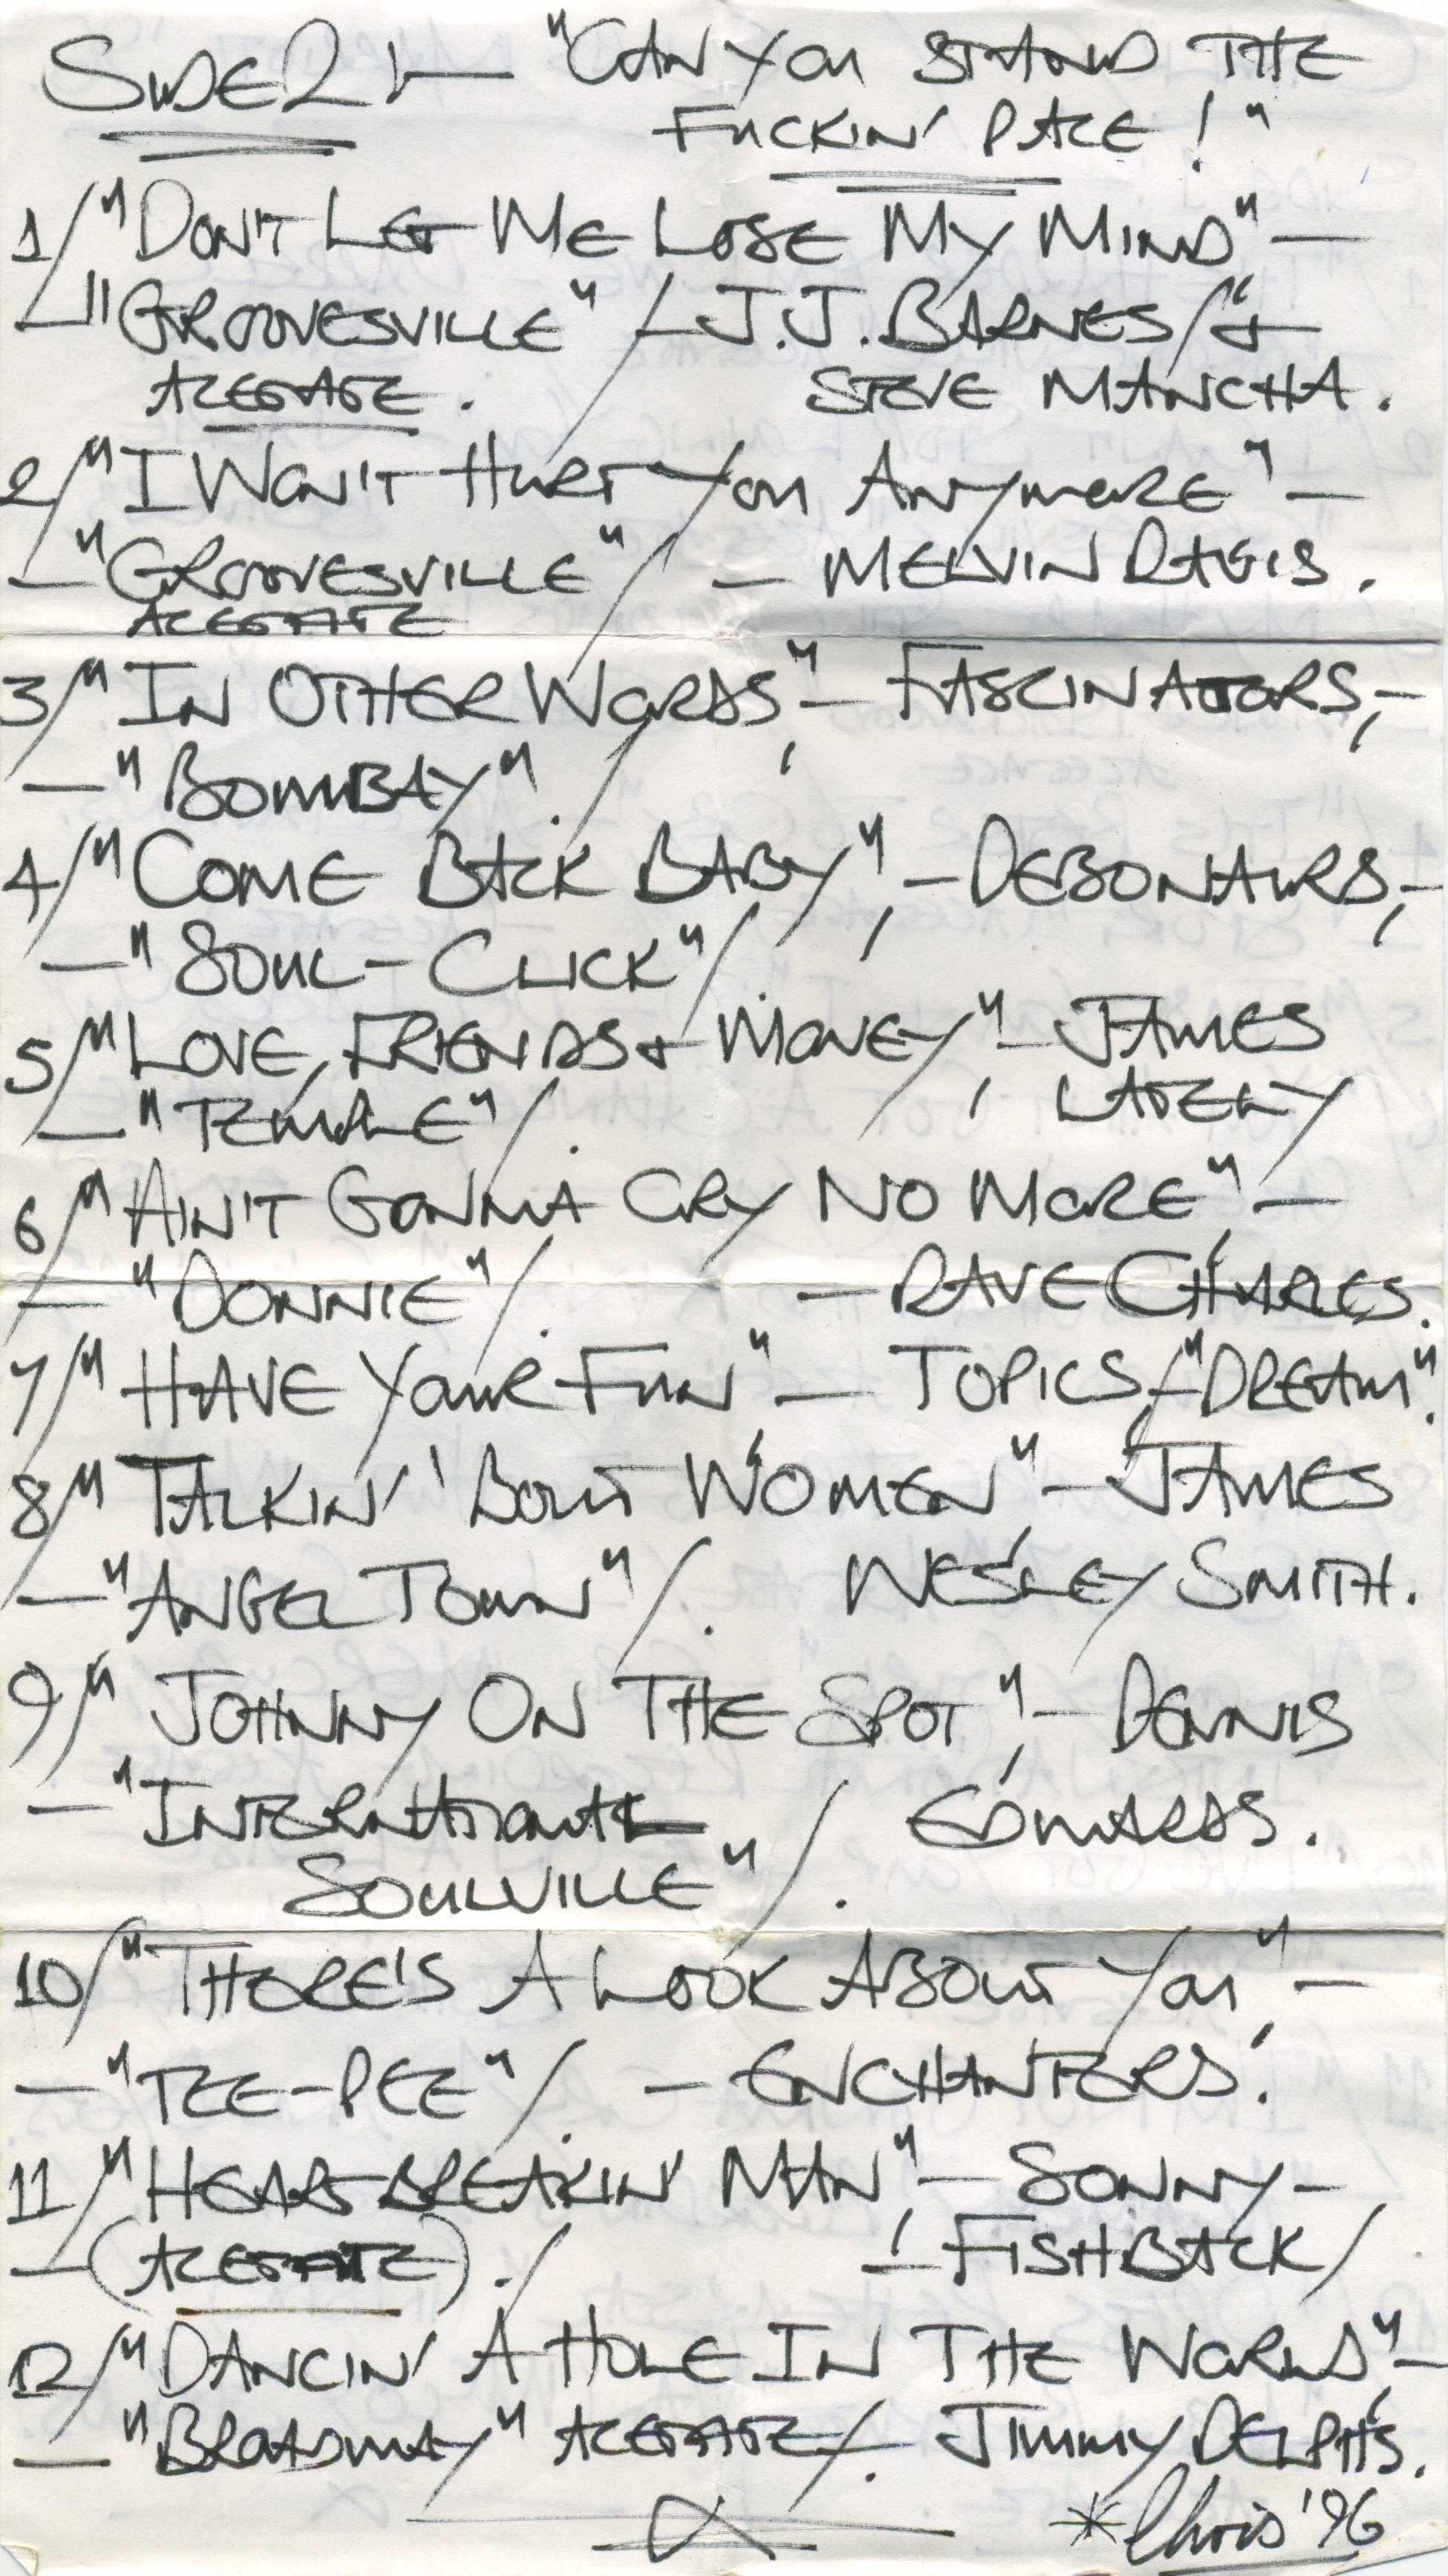 SIDE 2 — "CAN YOU STAND THE
FUCKIN' PACE!"
1/ "DON'T LET ME LOSE MY MIND" —
— "GROOVESVILLE" / — J.J. BARNES / +
ACETATE. STEVE MANCHA.
2/ "I WON'T HURT YOU ANYMORE" —
— "GROOVESVILLE" / — MELVIN DAVIS.
ACETATE
3/ "IN OTHER WORDS", — FASCINATORS, —
— "BOMBAY" ./
4/ "COME BACK BABY", — DEBONAIRS, —
— "SOUL-CLICK" /.
5/ "LOVE, FRIENDS + MONEY", — JAMES
— "TEMPLE" /. LATELY
6/ "AIN'T GONNA CRY NO MORE", —
— "DONNIE" /. — DAVE CHARLES.
7/ "HAVE YOUR FUN", — TOPICS, / "DREAM".
8/ "TALKIN' 'BOUT WOMEN", — JAMES
— "ANGEL TOWN" /. WESLEY SMITH.
9/ "JOHNNY ON THE SPOT", — DENNIS
— "INTERNATIONAL EDWARDS.
SOULVILLE" /.
10/ "THERE'S A LOOK ABOUT YOU", —
— "TEE-PEE" /. — ENCHANTERS.
11/ "HEARTBREAKIN' MAN", — SONNY —
— (ACETATE). / — FISHBACK /
12/ "DANCIN' A HOLE IN THE WORLD", —
— "BROADWAY" ACETATE /. JIMMY DELPHS.
* Chris '96